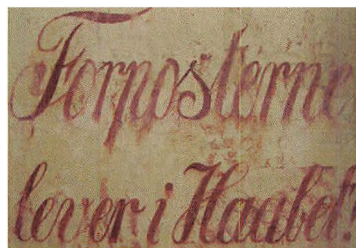 Forposterne
lever i Haabet!